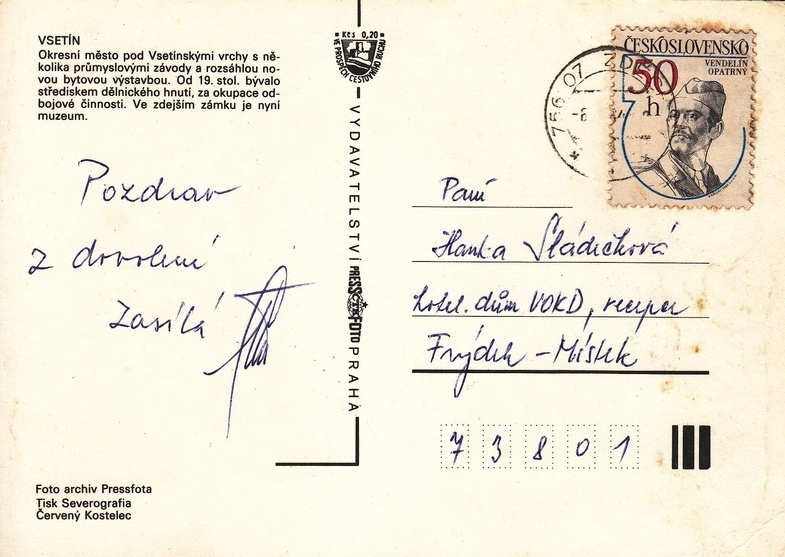 VSETÍN
Okresní město pod Vsetínskými vrchy s ně-
kolika průmyslovými závody a rozsáhlou no-
vou bytovou výstavbou. Od 19. stol. bývalo
střediskem dělnického hnutí, za okupace od-
bojové činnosti. Ve zdejším zámku je nyní
muzeum.
Pozdrav
z dovolené
Zasílá
Foto archiv Pressfota
Tisk Severografia
Červený Kostelec
Kčs 0,20
VE PROSPĚCH CESTOVNÍHO RUCHU
VYDAVATELSTVÍ PRESSFOTO PRAHA
756 07 ZDĚ
ČESKOSLOVENSKO
VENDELÍN
OPATRNÝ
50
h
Paní
Hanka Sládečková
hotel. dům VOKD, recepce
Frýdek - Místek
73801